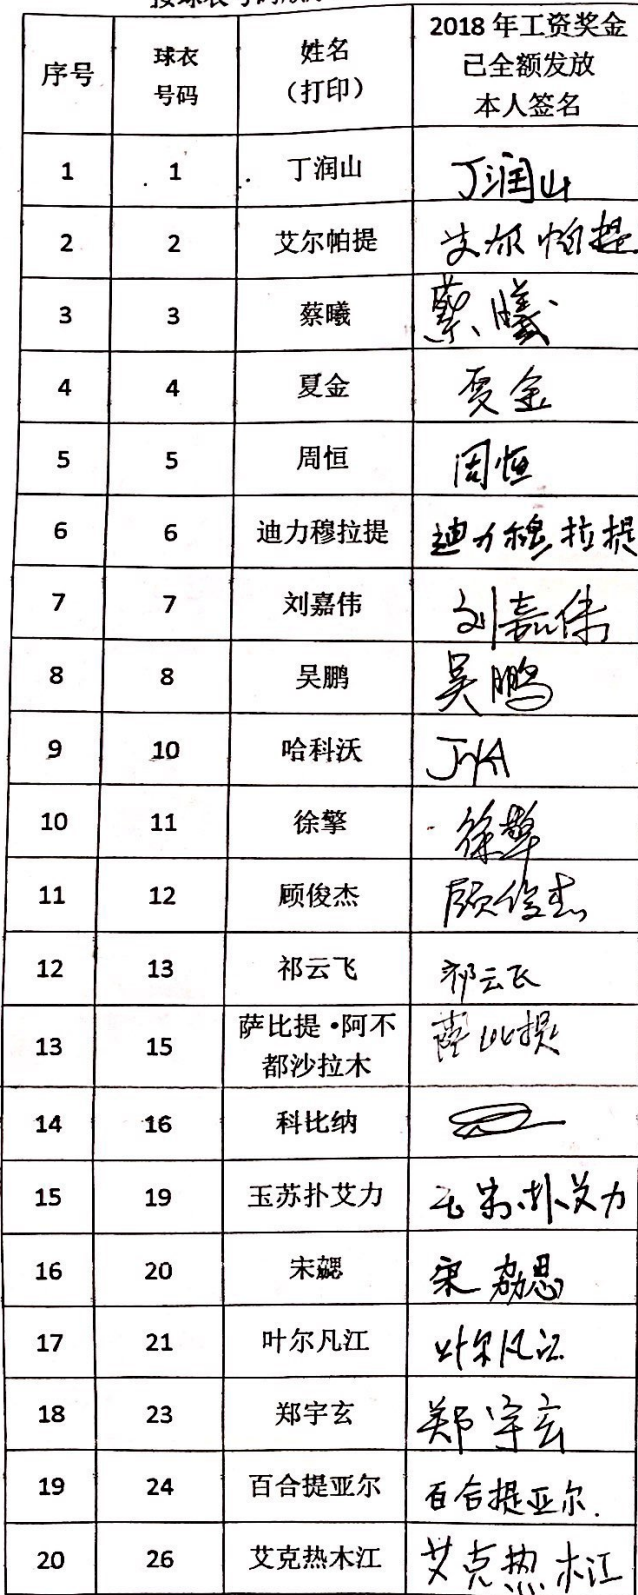 序号 球衣号码 姓名（打印） 2018年工资奖金已全额发放本人签名
1 1 丁润山 丁润山
2 2 艾尔帕提 艾尔帕提
3 3 蔡曦 蔡曦
4 4 夏金 夏金
5 5 周恒 周恒
6 6 迪力穆拉提 迪力穆拉提
7 7 刘嘉伟 刘嘉伟
8 8 吴鹏 吴鹏
9 10 哈科沃
10 11 徐擎 徐擎
11 12 顾俊杰 顾俊杰
12 13 祁云飞 祁云飞
13 15 萨比提•阿不都沙拉木 萨比提
14 16 科比纳
15 19 玉苏扑艾力 玉苏扑艾力
16 20 宋勰 宋勰
17 21 叶尔凡江 叶尔凡江
18 23 郑宇玄 郑宇玄
19 24 百合提亚尔 百合提亚尔.
20 26 艾克热木江 艾克热木江